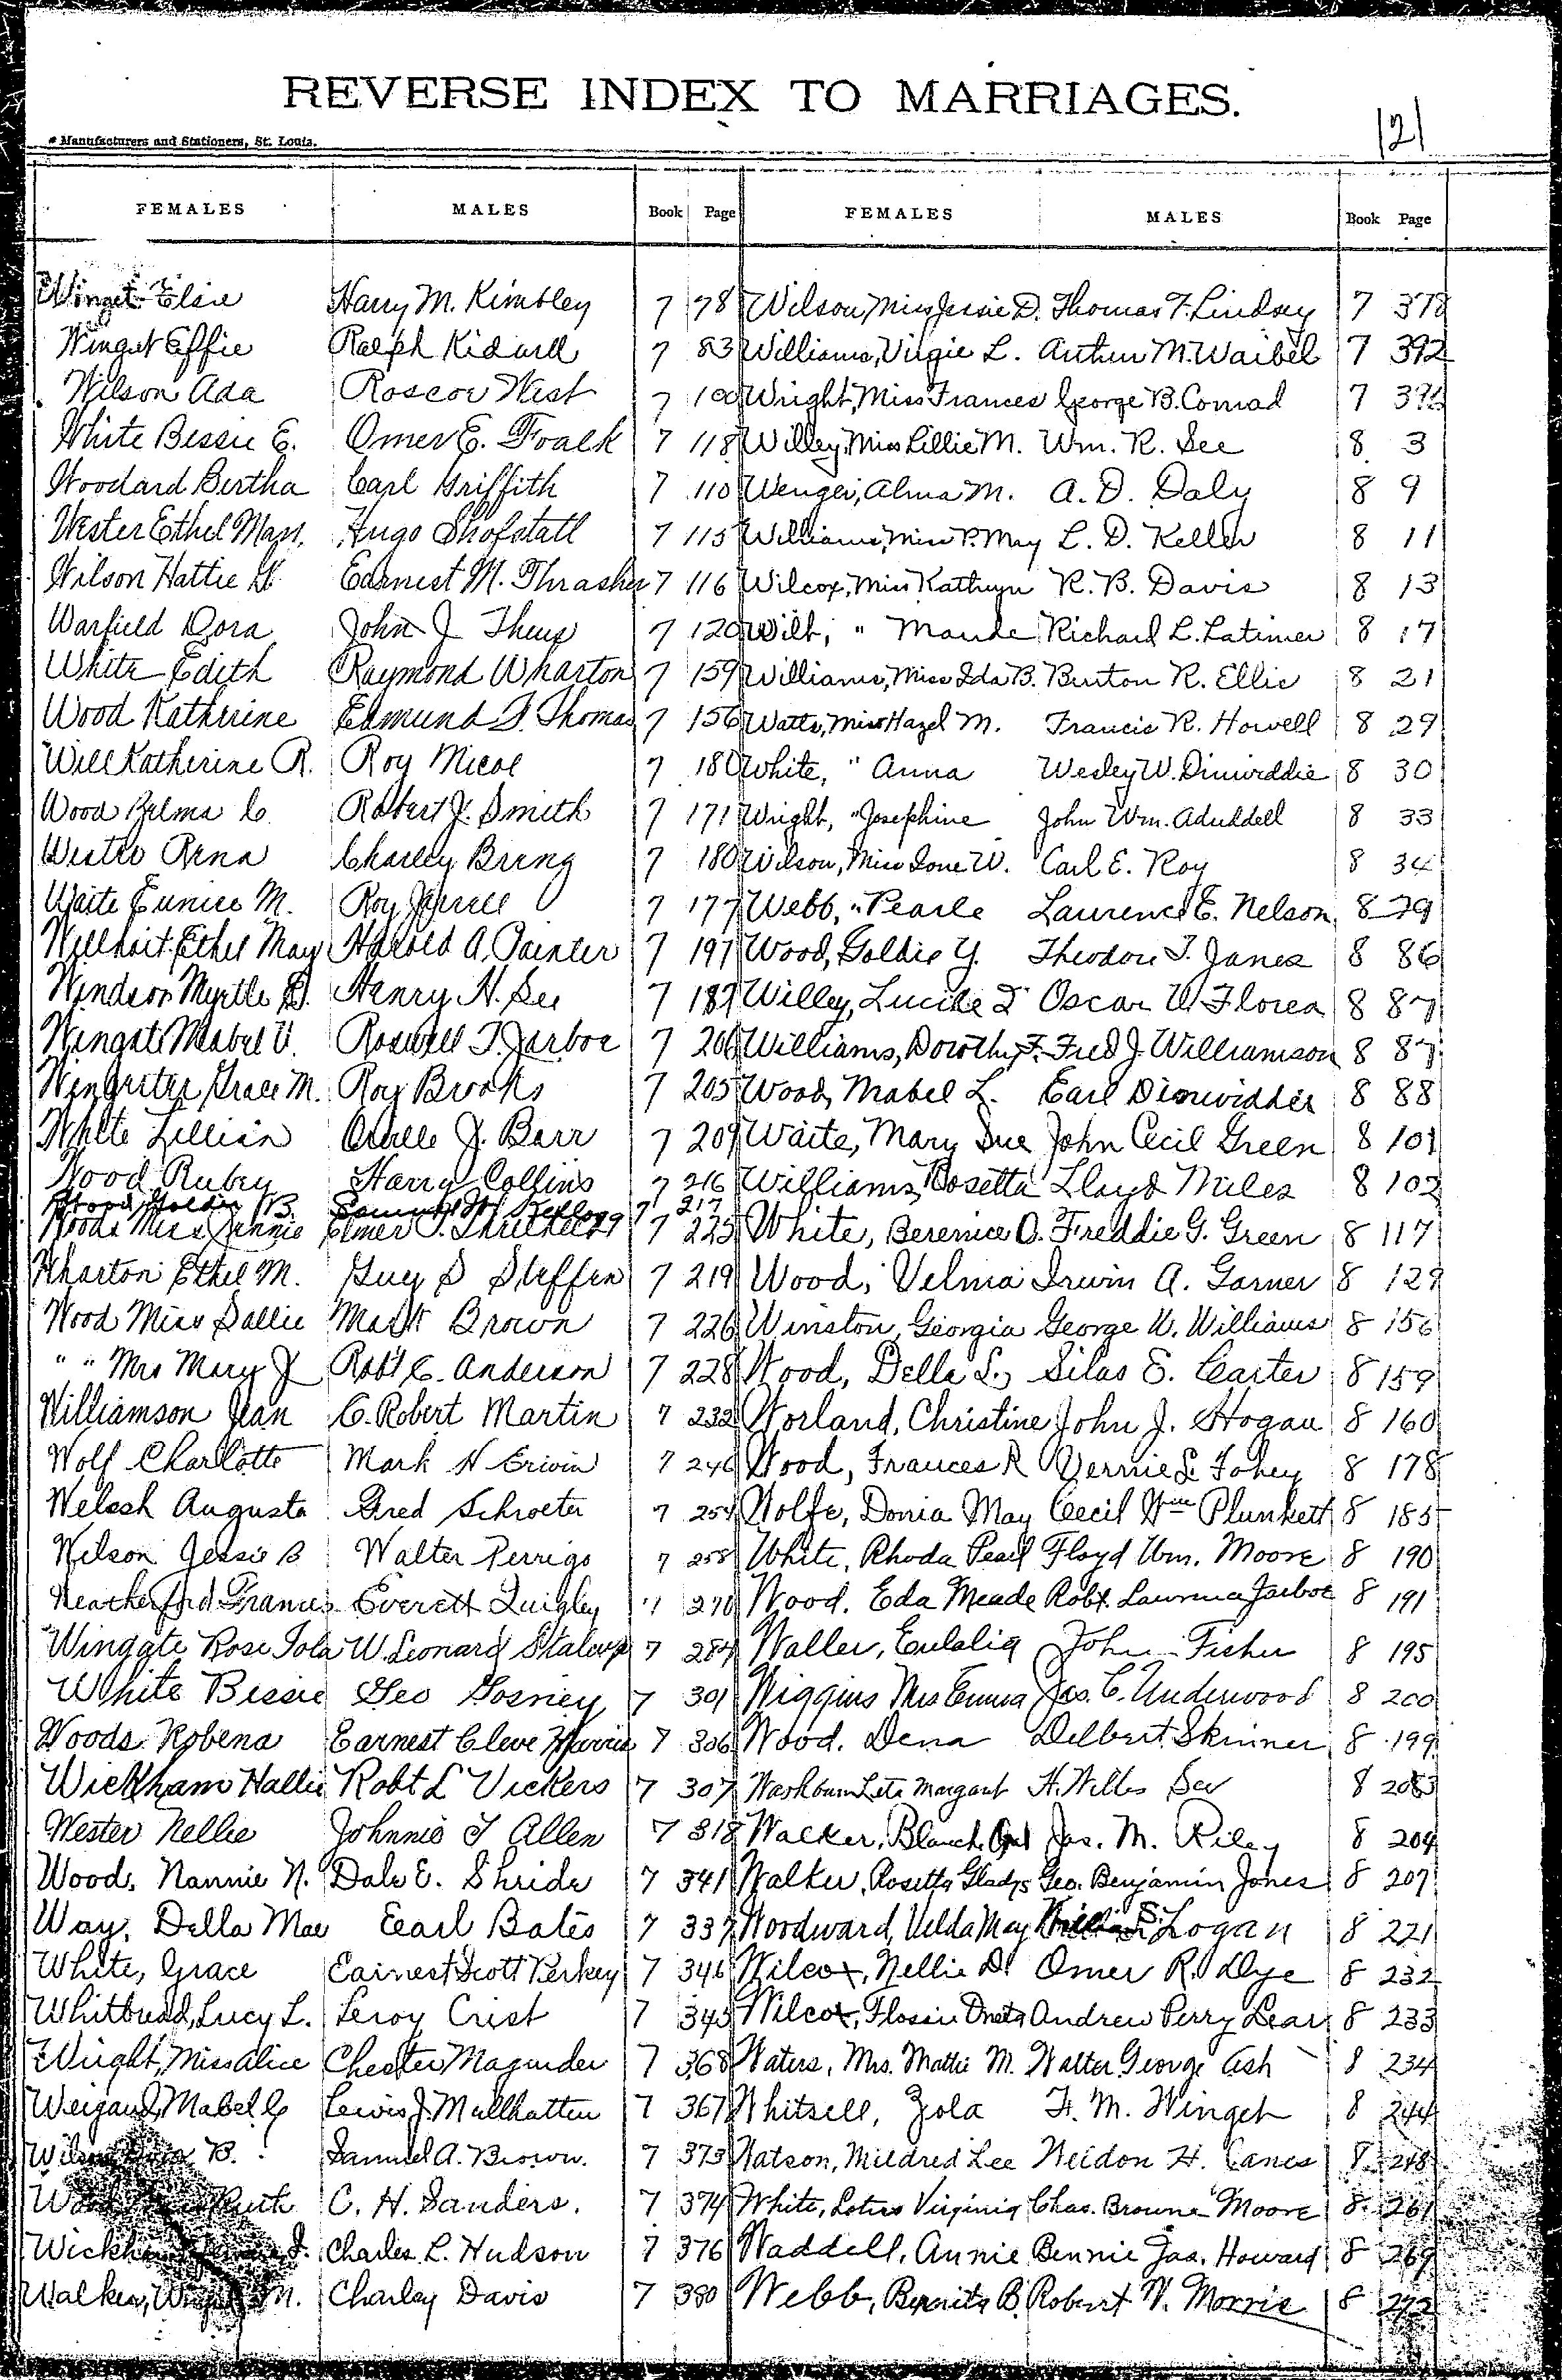 REVERSE INDEX TO MARRIAGES.
121
Manufacturers and Stationers, St. Louis.
FEMALES MALES Book Page FEMALES MALES Book Page
Winget Elsie Harry M. Kimbley 7 78 Wilson, Miss Jessie D. Thomas F. Lindsey 7 378
Winget Effie Ralph Kidwell 7 83 Williams, Virgie L. Arthur M. Waibel 7 392
Wilson Ada Roscoe West 7 100 Wright, Miss Frances George B. Conrad 7
White Bessie E. Omer E. Foalk 7 118 Willey, Miss Lillie M. Wm. R. See 8 3
Woodard Bertha Carl Griffith 7 110 Wenger, Alma M. A. D. Daly 8 9
Wester Ethel May. Hugo Shofstall 7 115 Williams, Miss P. May L. D. Keller 8 11
Wilson Hattie Earnest M. Thrasher 7 116 Wilcox, Miss Kathryn R. B. Davis 8 13
Warfield Dora John J 7 120 Wilt, " Maude Richard L. Latimer 8 17
White Edith Raymond Wharton 7 159 Williams, Miss Ida B. Burton R. Ellis 8 21
Wood Katherine Edmund F. Thomas 7 156 Watts, Miss Hazel M. Francis R. Howell 8 29
Will Katherine R. Roy Micol 7 180 White, " Anna Wesley W. Dinwiddie 8 30
Wood Zelma C. Robert J. Smith 7 171 Wright, " Josephine John Wm. Aduddell 8 33
Charley Bring 7 180 Wilson, Miss Ione W. Carl E. Roy 8 34
Waite Eunice M. Roy 7 177 Webb, " Pearle Laurence E. Nelson 8
Willhoit Ethel May Harold A. Painter 7 197 Wood, Goldie Y. Theodore T. Janes 8 86
Windsor Myrtle B. Henry H. See 7 187 Willey, Lucile T Oscar W Florea 8 87
Wingate Mabel V. Roswell T. Jarboe 7 206 Williams, Dorothy F. Fred J. Williamson 8 87
Grace M. Roy Brooks 7 205 Wood, Mabel L. Earl Dinwiddie 8 88
White Lillian Orville J. Barr 7 209 Waite, Mary Sue John Cecil Green 8 101
Wood Ruby Harry Collins 7 216 Williams, Rosetta Lloyd Miles 8 102
Wood Goldie B. Samuel W. Kellogg 7 217
Woods Miss Jennie Elmer T. Threlkeld 7 225 White, Berenice O. Freddie G. Green 8 117
Wharton Ethel M. Guy S Steffen 7 219 Wood, Velma Irwin A. Garner 8 129
Wood Miss Sallie Mark Brown 7 226 Winston, Georgia George W. Williams 8 156
" " Mrs Mary J Robt C. Anderson 7 228 Wood, Della L. Silas E. Carter 8 159
Williamson Jean C. Robert Martin 7 232 Worland, Christine John J. Hogan 8 160
Wolf Charlotte Mark H Erwin 7 246 Wood, Frances R Vernie L. Fohey 8 178
Welssh Augusta Fred Schroeter 7 254 Wolfe, Donia May Cecil Wm Plunkett 8 185
Wilson Jessie B Walter Perrigo 7 258 White, Rhoda Pearl Floyd Wm. Moore 8 190
Weatherford Frances Everett Quigley 7 270 Wood. Eda Meade Robt. Lawrence Jarboe 8 191
Wingate Rose Iola W. Leonard 7 284 Waller, Eulalia John Fisher 8 195
White Bessie Geo Gosney 7 301 Wiggins Mrs Emma Jas. C. Underwood 8 200
Woods Robena Earnest Cleve Harris 7 306 Wood. Dena Delbert Skinner 8 199
Wickham Hallie Robt L Vickers 7 307 Washburn Leta Margaret H. Willis See 8 203
Wester Nellie Johnnie T Allen 7 318 Walker, Blanch Opal Jas. M. Riley 8 204
Wood, Nannie N. Dale E. Shride 7 341 Walker, Rosetta Gladys Geo. Benjamin Jones 8 207
Way, Della Mae Earl Bates 7 337 Woodward, Velda May S. Logan 8 221
White, Grace Earnest Scott Kerkey 7 346 Wilcox, Nellie D. Omer R. Dye 8 232
Whitbread, Lucy L. Leroy Crist 7 345 Wilcox, Flossie Oneta Andrew Perry Lear 8 233
Wright, Miss Alice Chester Magruder 7 368 Waters, Mrs. Mattie M. Walter George Ash 8 234
Weigand, Mabel C Lewis J. Mullhatten 7 367 Whitsell, Zola F. M. Winget 8 244
B. Samuel A. Brown. 7 373 Watson, Mildred Lee Weldon H. Janes 8 248
Ruth C. H. Sanders. 7 374 White, Lotus Virginia Chas. Browne Moore 8 261
Charles L. Hudson 7 376 Waddell, Annie Bennie Jas. Howard 8 269
Walker, M. Charley Davis 7 380 Webb, Bernita B. Robert W. Morris 8 272